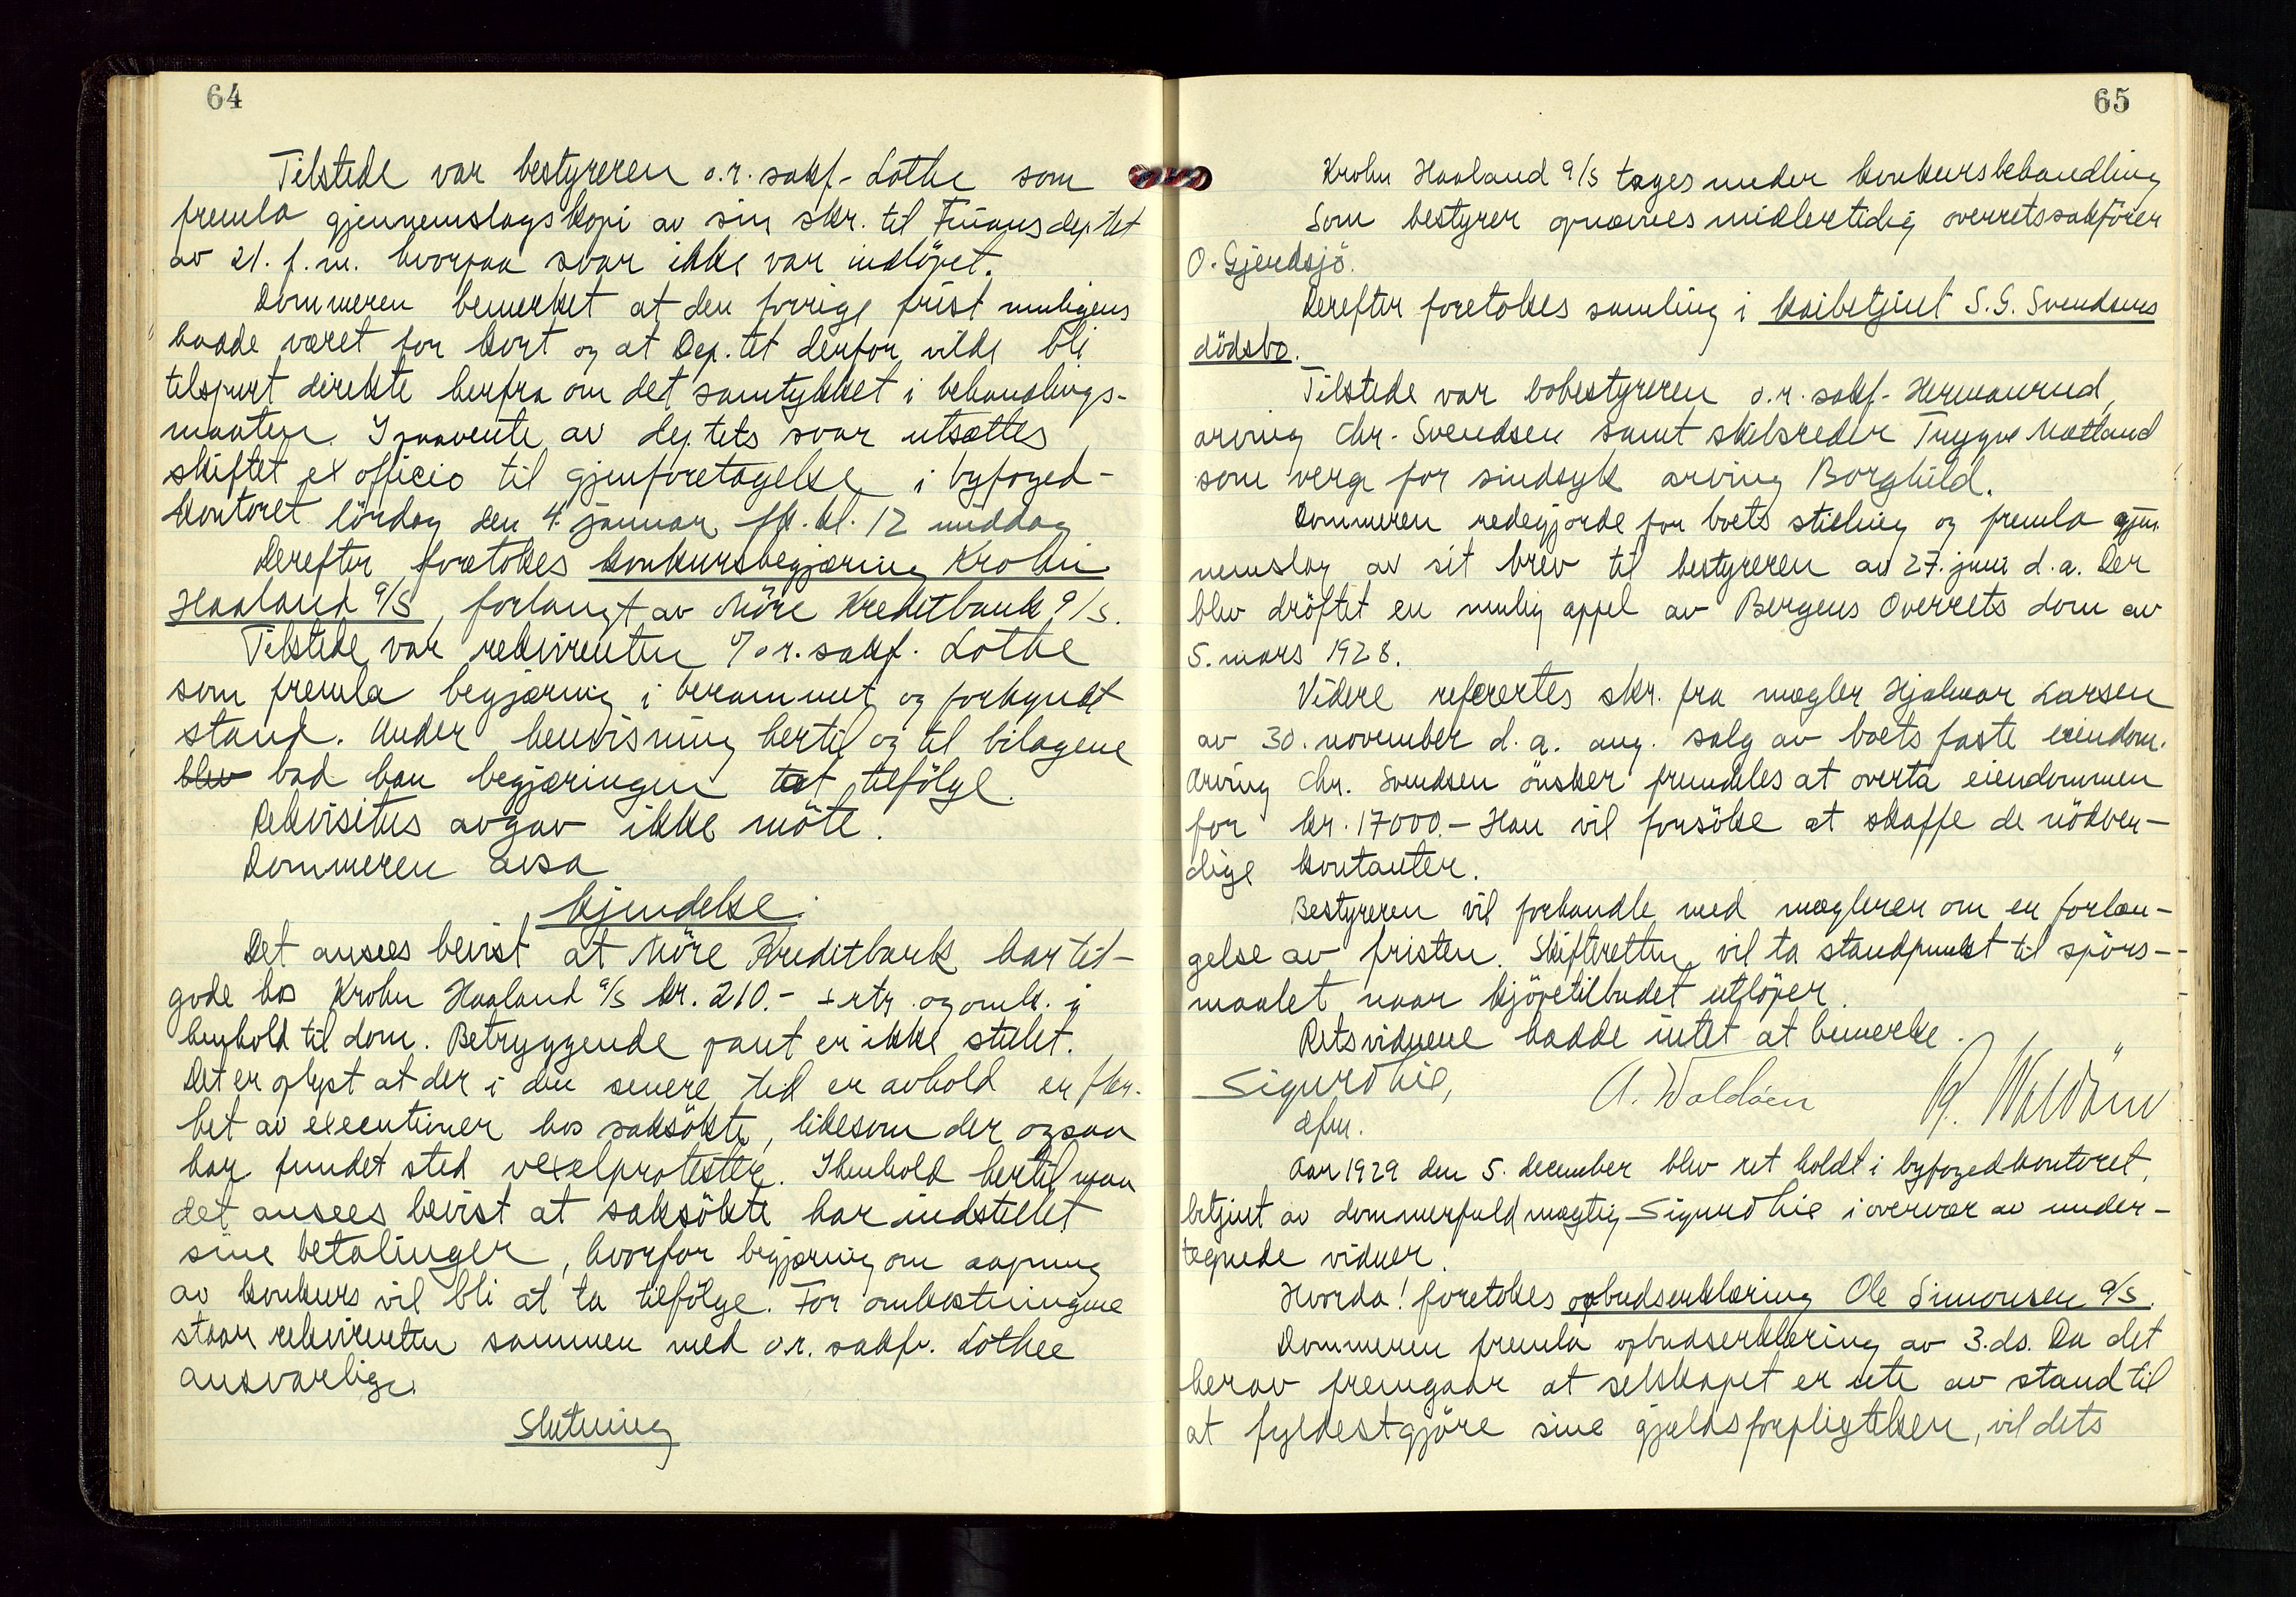 64
Tilstede var bestyreren o.r. sakf. Lothe som
fremla gjennemslagskopi av sin skr. til Finansdeptet
av 21. f.m. hvorpaa svar ikke var indløpet.
Dommeren bemerket at den forrige frist muligens
hadde været for kort og at Dep.tet derfor vilde bli
tilspurt direkte herfra om det samtykket i behandlings-
maaten. I paavente av dep.tets svar utsattes
skiftet ex officio til gjenforetagelse i byfoged-
kontoret lördag den 4. januar fk. kl. 12 middag
Derefter foretokes konkursbegjæring Krohn
Haaland a/s, forlangt av Möre Kreditbank a/s.
Tilstede var rekvirenten v/o.r. sakf. Lothe
som fremla begjæring i berammet og forkyndt
stand. Under henvisning hertil og til bilagene
blev bad han begjæringen tat tilfölge.
Rekvisitus avgav ikke möte.
Dommeren avsa
kjendelse:
Det ansees bevist at Möre Kreditbank har til-
gode hos Krohn Haaland a/s kr. 210.- + rtr. og omk. i
henhold til dom. Betryggende pant er ikke stillet.
Det er oplyst at der i den senere tid er avhold en fler-
het av executioner hos saksökte, likesom der ogsaa
har fundet sted vexelprotester. I henhold hertil maa
det ansees bevist at saksökte har indstillet
sine betalinger, hvorfor begjæring om aapning
av konkurs vil bli at ta tilfölge. For omkostningene
staar rekvirenten sammen med o.r. sakf. Lothe
ansvarlige.
Slutning
65
Krohn Haaland a/s tages under konkursbehandling
Som bestyrer opnævnes midlertidig overretssakförer
O. Gjendsjö.
Derefter foretokes samling i kaibetjent S. G. Svendsens
dödsbo.
Tilstede var bobestyreren o.r. sakf. Hermanrud,
arving Chr. Svendsen samt skibsreder Trygve Mætland
som verge for sindsyk arving Borghild.
Dommeren redegjorde for boets stilling og fremla gjen-
nemslag av sit brev til bestyreren av 27. juni d.a. Der
blev dröftet en mulig appel av Bergens Overrets dom av
5. mars 1928.
Videre refererTes skr. fra megler Hjalmar Larsen
av 30. november d.a. ang. salg av boets faste eiendom.
Arving Chr. Svendsen önsker fremdeles at overta eiendommen
for kr. 17000.- Han vil forsöke at skaffe de nödven-
dige kontanter.
Bestyreren vil forhandle med mægleren om en forlæn-
gelse av fristen. Skifteretten vil ta standpunkt til spörs-
maalet naar kjöpetilbudet utlöper.
Retsvidnene hadde intet at bemerke.
Sigurd Lie,
dfm.
A. Waldäen
Aar 1929 den 5. december blev ret holdt i byfogedkontoret,
betjent av dommerfuldmægtig Sigurd Lie i overvær av under-
tegnede vidner.
Hvorda! foretokes opbudserklæring Ole Simonsen a/s.
Dommeren fremla opbudserklæring av 3. ds. Da det
herav fremgaar at selskapet er ute av stand til
at fyldestgjöre sine gjældsforpligtelser, vil dets